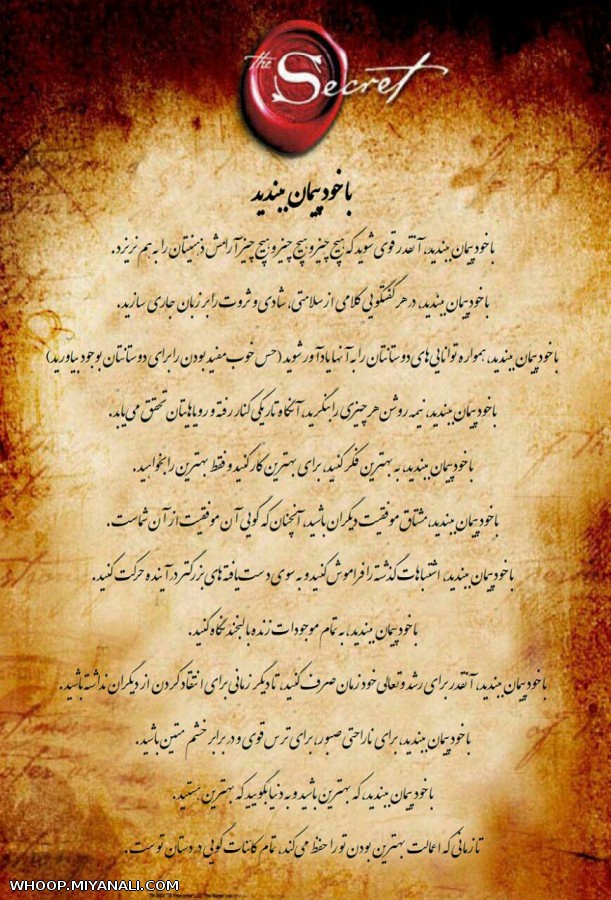 the Secret
با خود پیمان ببندید
با خود پیمان ببندید، آنقدر قوی شوید که هیچ چیز و هیچ چیز و هیچ چیز آرامش ذهنیتان را به هم نریزد.
با خود پیمان ببندید، در هر گفتگویی کلامی از سلامتی، شادی و ثروت را بر زبان جاری سازید.
با خود پیمان ببندید، همواره توانایی های دوستانتان را به آنها یادآور شوید (حس خوب مفید بودن را برای دوستانتان بوجود بیاورید)
با خود پیمان ببندید، نیمه روشن هر چیزی را بنگرید، آنگاه تاریکی کنار رفته و رویاهایتان تحقق می یابد.
با خود پیمان ببندید، به بهترین فکر کنید، برای بهترین کار کنید و فقط بهترین را بخواهید.
با خود پیمان ببندید، مشتاق موفقیت دیگران باشید، آنچنان که گویی آن موفقیت از آن شماست.
با خود پیمان ببندید، اشتباهات گذشته را فراموش کنید و به سوی دست یافته های بزرگتر در آینده حرکت کنید.
با خود پیمان ببندید، به تمام موجودات زنده با لبخند نگاه کنید.
با خود پیمان ببندید، آنقدر برای رشد و تعالی خود زمان صرف کنید، تا دیگر زمانی برای انتقاد کردن از دیگران نداشته باشید.
با خود پیمان ببندید، برای ناراحتی صبور، برای ترس قوی و در برابر خشم متین باشید.
با خود پیمان ببندید، که بهترین باشید و به دنیا بگویید که بهترین هستید.
تا زمانی که اعمالت بهترین بودن تو را حفظ می کند، تمام کائنات گویی در دستان توست.
WHOOP.MIYANALI.COM